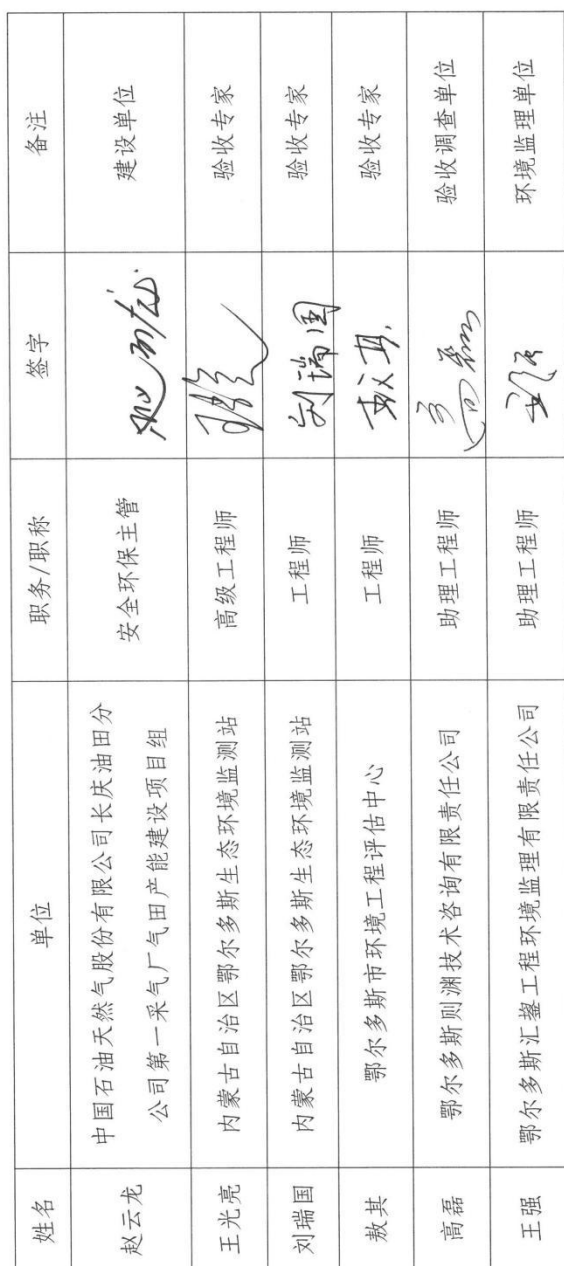 姓名 单位 职务/职称 签字 备注
赵云龙 中国石油天然气股份有限公司长庆油田分 安全环保主管 建设单位
公司第一采气厂气田产能建设项目组
王光亮 内蒙古自治区鄂尔多斯生态环境监测站 高级工程师 验收专家
刘瑞国 内蒙古自治区鄂尔多斯生态环境监测站 工程师 刘瑞国 验收专家
敖其 鄂尔多斯市环境工程评估中心 工程师 敖其 验收专家
高磊 鄂尔多斯则渊技术咨询有限责任公司 助理工程师 高磊 验收调查单位
王强 鄂尔多斯汇鋆工程环境监理有限责任公司 助理工程师 王强 环境监理单位